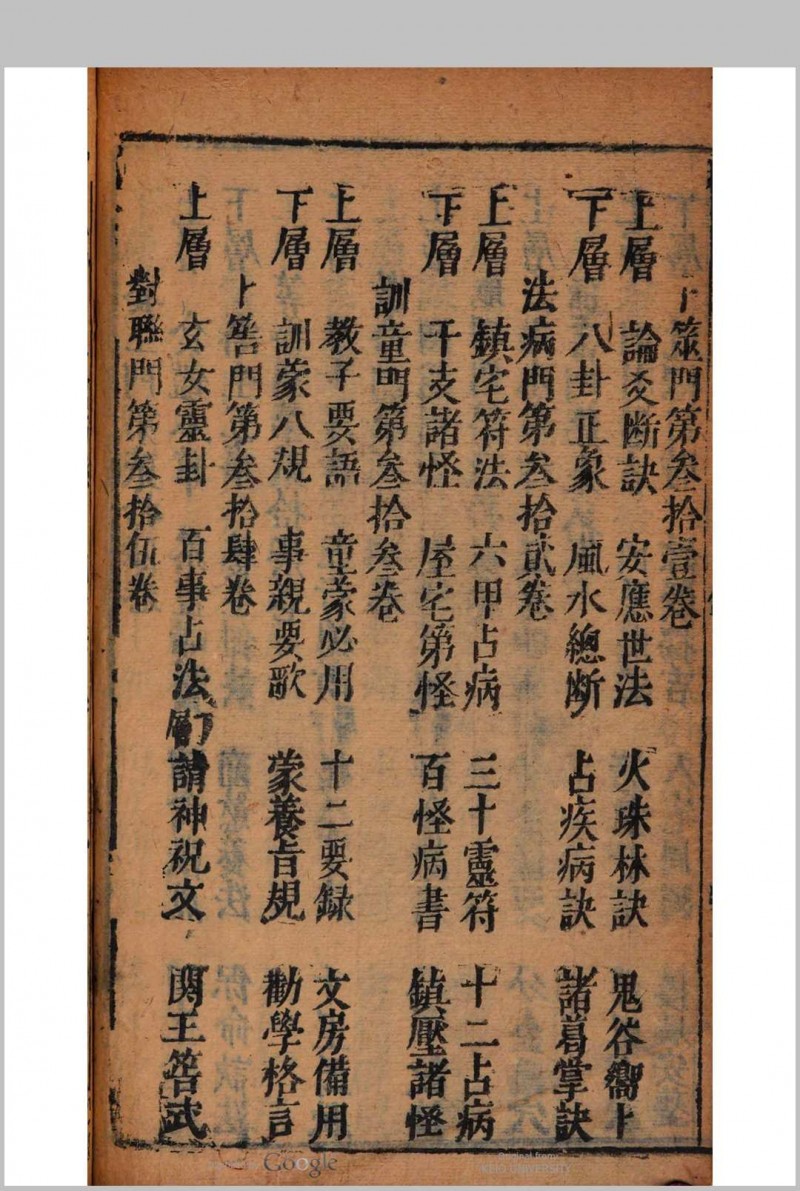 卜筮門第叁拾壹卷
上層 論爻断訣 安應世法 火珠林訣 鬼谷嚮卜
下層 八卦正象 風水總断 占疾病訣 諸葛掌訣
法病門第叁拾貳卷
上層 鎮宅符法 六甲占病 三十靈符 十二占病
下層 干支諸怪 屋宅第怪 百怪病書 鎮壓諸怪
訓童門第叁拾叁卷
上層 教子要語 童蒙必用 十二要録 文房備用
下層 訓蒙八規 事親要歌 蒙養旨規 勸學格言
卜筶門第叁拾肆卷
上層 玄女靈卦 百事占法 下層 請神祝文 関王筶武
對聯門第叁拾伍卷
Google
Original from
KEIO UNIVERSITY